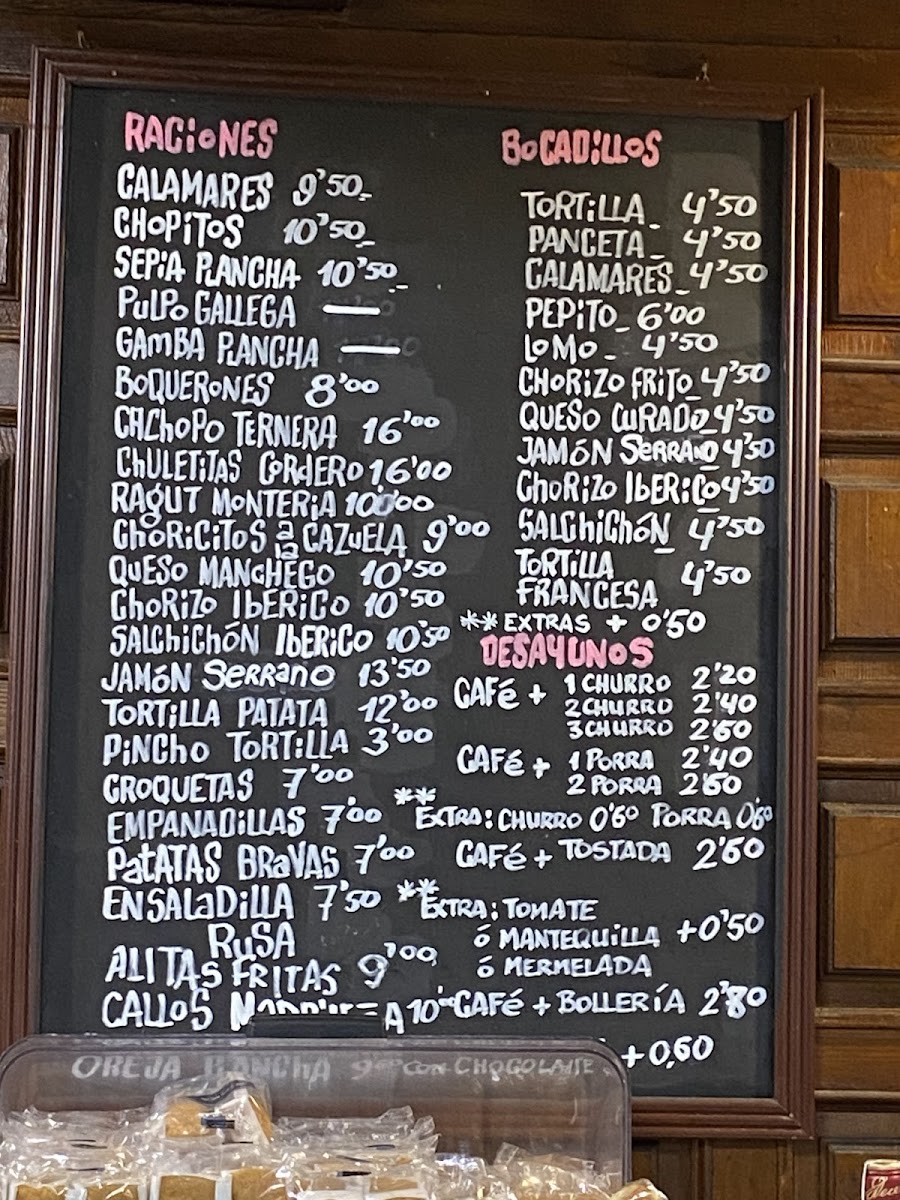 RACiONES
CALAMARES 9'50_
CHOPiTOS 10'50_
SEPiA PLANCHA 10'50_
PULPO GALLEGA —
GAMBA PLANCHA —
BOQUERONES 8'00
CACHOPO TERNERA 16'00
CHULETiTAS CORDERO 16'00
RAGUT MONTERiA 10'00
CHORiCiTOS a la CAZUELA 9'00
QUESO MANCHEGO 10'50
CHORiZO IBERiCO 10'50
SALCHiCHÓN IBERiCO 10'50
JAMÓN Serrano 13'50
TORTiLLA PATATA 12'00
PiNCHO TORTiLLA 3'00
CROQUETAS 7'00
EMPANADiLLAS 7'00
PATATAS BRAVAS 7'00
ENSALADiLLA 7'50
RUSA
ALITAS FRITAS 9'00
CALLOS A 10'
OREJA PLANCHA 9
BOCADiLLOS
TORTiLLA_ 4'50
PANCETA_ 4'50
CALAMARES_ 4'50
PEPiTO_ 6'00
LOMO_ 4'50
CHORIZO FRiTO_ 4'50
QUESO CURADO_ 4'50
JAMÓN SERRANO 4'50
CHORiZO IBERiCO 4'50
SALCHiCHÓN_ 4'50
TORTiLLA
FRANCESA 4'50
** EXTRAS + 0'50
DESAYUNOS
CAFé + 1 CHURRO 2'20
2 CHURRO 2'40
3 CHURRO 2'60
CAFé + 1 PORRA 2'40
2 PORRA 2'60
** EXTRA: CHURRO 0'60 PORRA 0'60
CAFé + TOSTADA 2'60
** EXTRA: TOMATE
ó MANTEQUILLA +0'50
ó MERMELADA
CAFé + BOLLERÍA 2'80
+0,60
CON CHOCOLATE